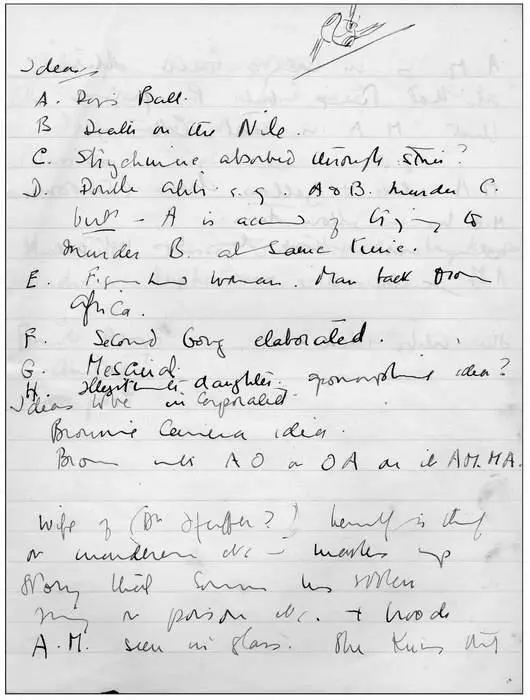 Ideas
A. Dog's Ball.
B Death on the Nile.
C. Strychnine absorbed through skin?
D. Double alibi e.g. A & B. murder C.
but – A is accused of trying to
murder B. at same time.
E. Figurehead woman. Man back from
Africa.
F. Second Gong elaborated.
G. Mescalin.
H. Illegitimate daughter. apomorphine idea?
Ideas to be incorporated
Brownie Camera idea
Brooch with AO or OA on it AM. MA.
wife of (Dr ?) herself is thief
or murderer etc – makes up
story that someone has stolen
or poison etc. +
A.M. seen in glass. She knows that